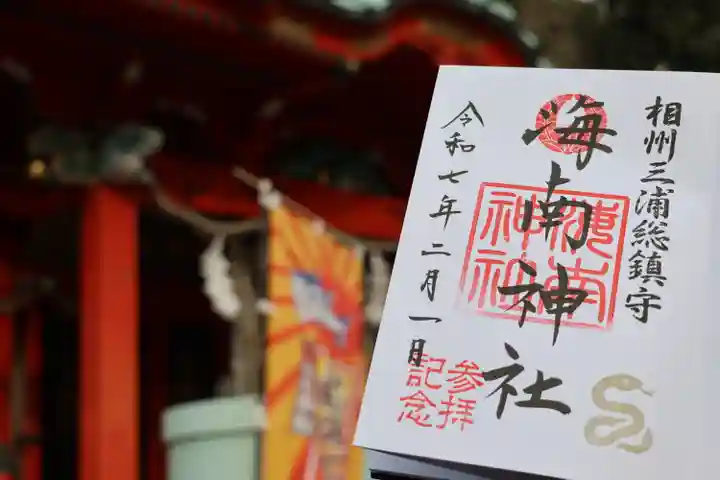 相州三浦総鎮守
海南神社
海南神社
令和七年二月一日
参拝
記念